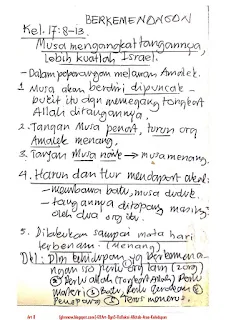 BERKEMENANGAN
Kel. 17:8-13.
Musa mengangkat tangannya,
lebih kuatlah Israel.
- Dalam peperangan melawan Amalek.
1. Musa akan berdiri dipuncak
bukit itu dan memegang tongkat
Allah ditangannya.
2. Tangan Musa penat, turun org
Amalek menang,
3. Tangan Musa naik → musa menang.
4. Harun dan Hur mendapat akal:
- membawa batu, musa duduk.
- tangannya ditopang masing2
oleh dua org itu.
5. Dilakukan sampai mata hari
terbenam. (Menang)
Dlm kehidupan yg berkemen
angan sso perlu org lain (2 org)
Perlu
Batu, Perlu
Penopang terus menerus.